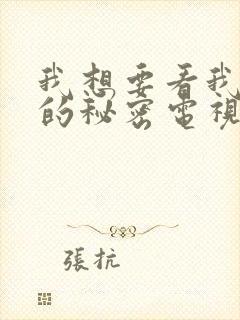 我想要看我
的秘密電視
張抗